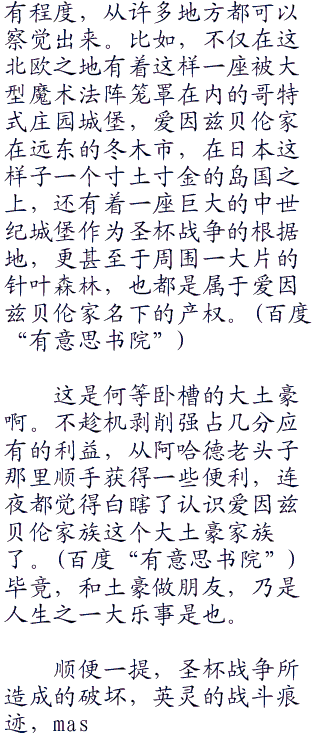 有程度，从许多地方都可以
察觉出来。比如，不仅在这
北欧之地有着这样一座被大
型魔术法阵笼罩在内的哥特
式庄园城堡，爱因兹贝伦家
在远东的冬木市，在日本这
样子一个寸土寸金的岛国之
上，还有着一座巨大的中世
纪城堡作为圣杯战争的根据
地，更甚至于周围一大片的
针叶森林，也都是属于爱因
兹贝伦家名下的产权。(百度
“有意思书院”)
这是何等卧槽的大土豪
啊。不趁机剥削强占几分应
有的利益，从阿哈德老头子
那里顺手获得一些便利，连
夜都觉得白瞎了认识爱因兹
贝伦家族这个大土豪家族
了。(百度“有意思书院”)
毕竟，和土豪做朋友，乃是
人生之一大乐事是也。
顺便一提，圣杯战争所
造成的破坏，英灵的战斗痕
迹，mas